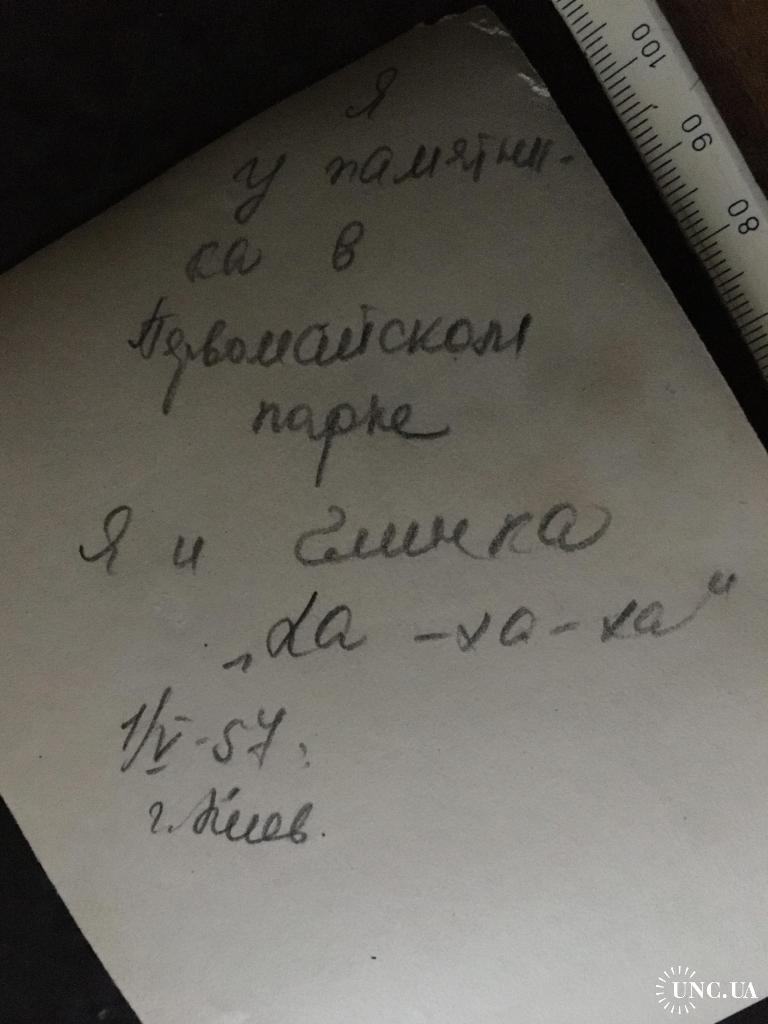 Я
у памятни-
ка в
Первомайском
парке
Я и Глинка
„Ха -ха-ха"
1/V-57.
г. Киев.
100
90
80
UNC.UA